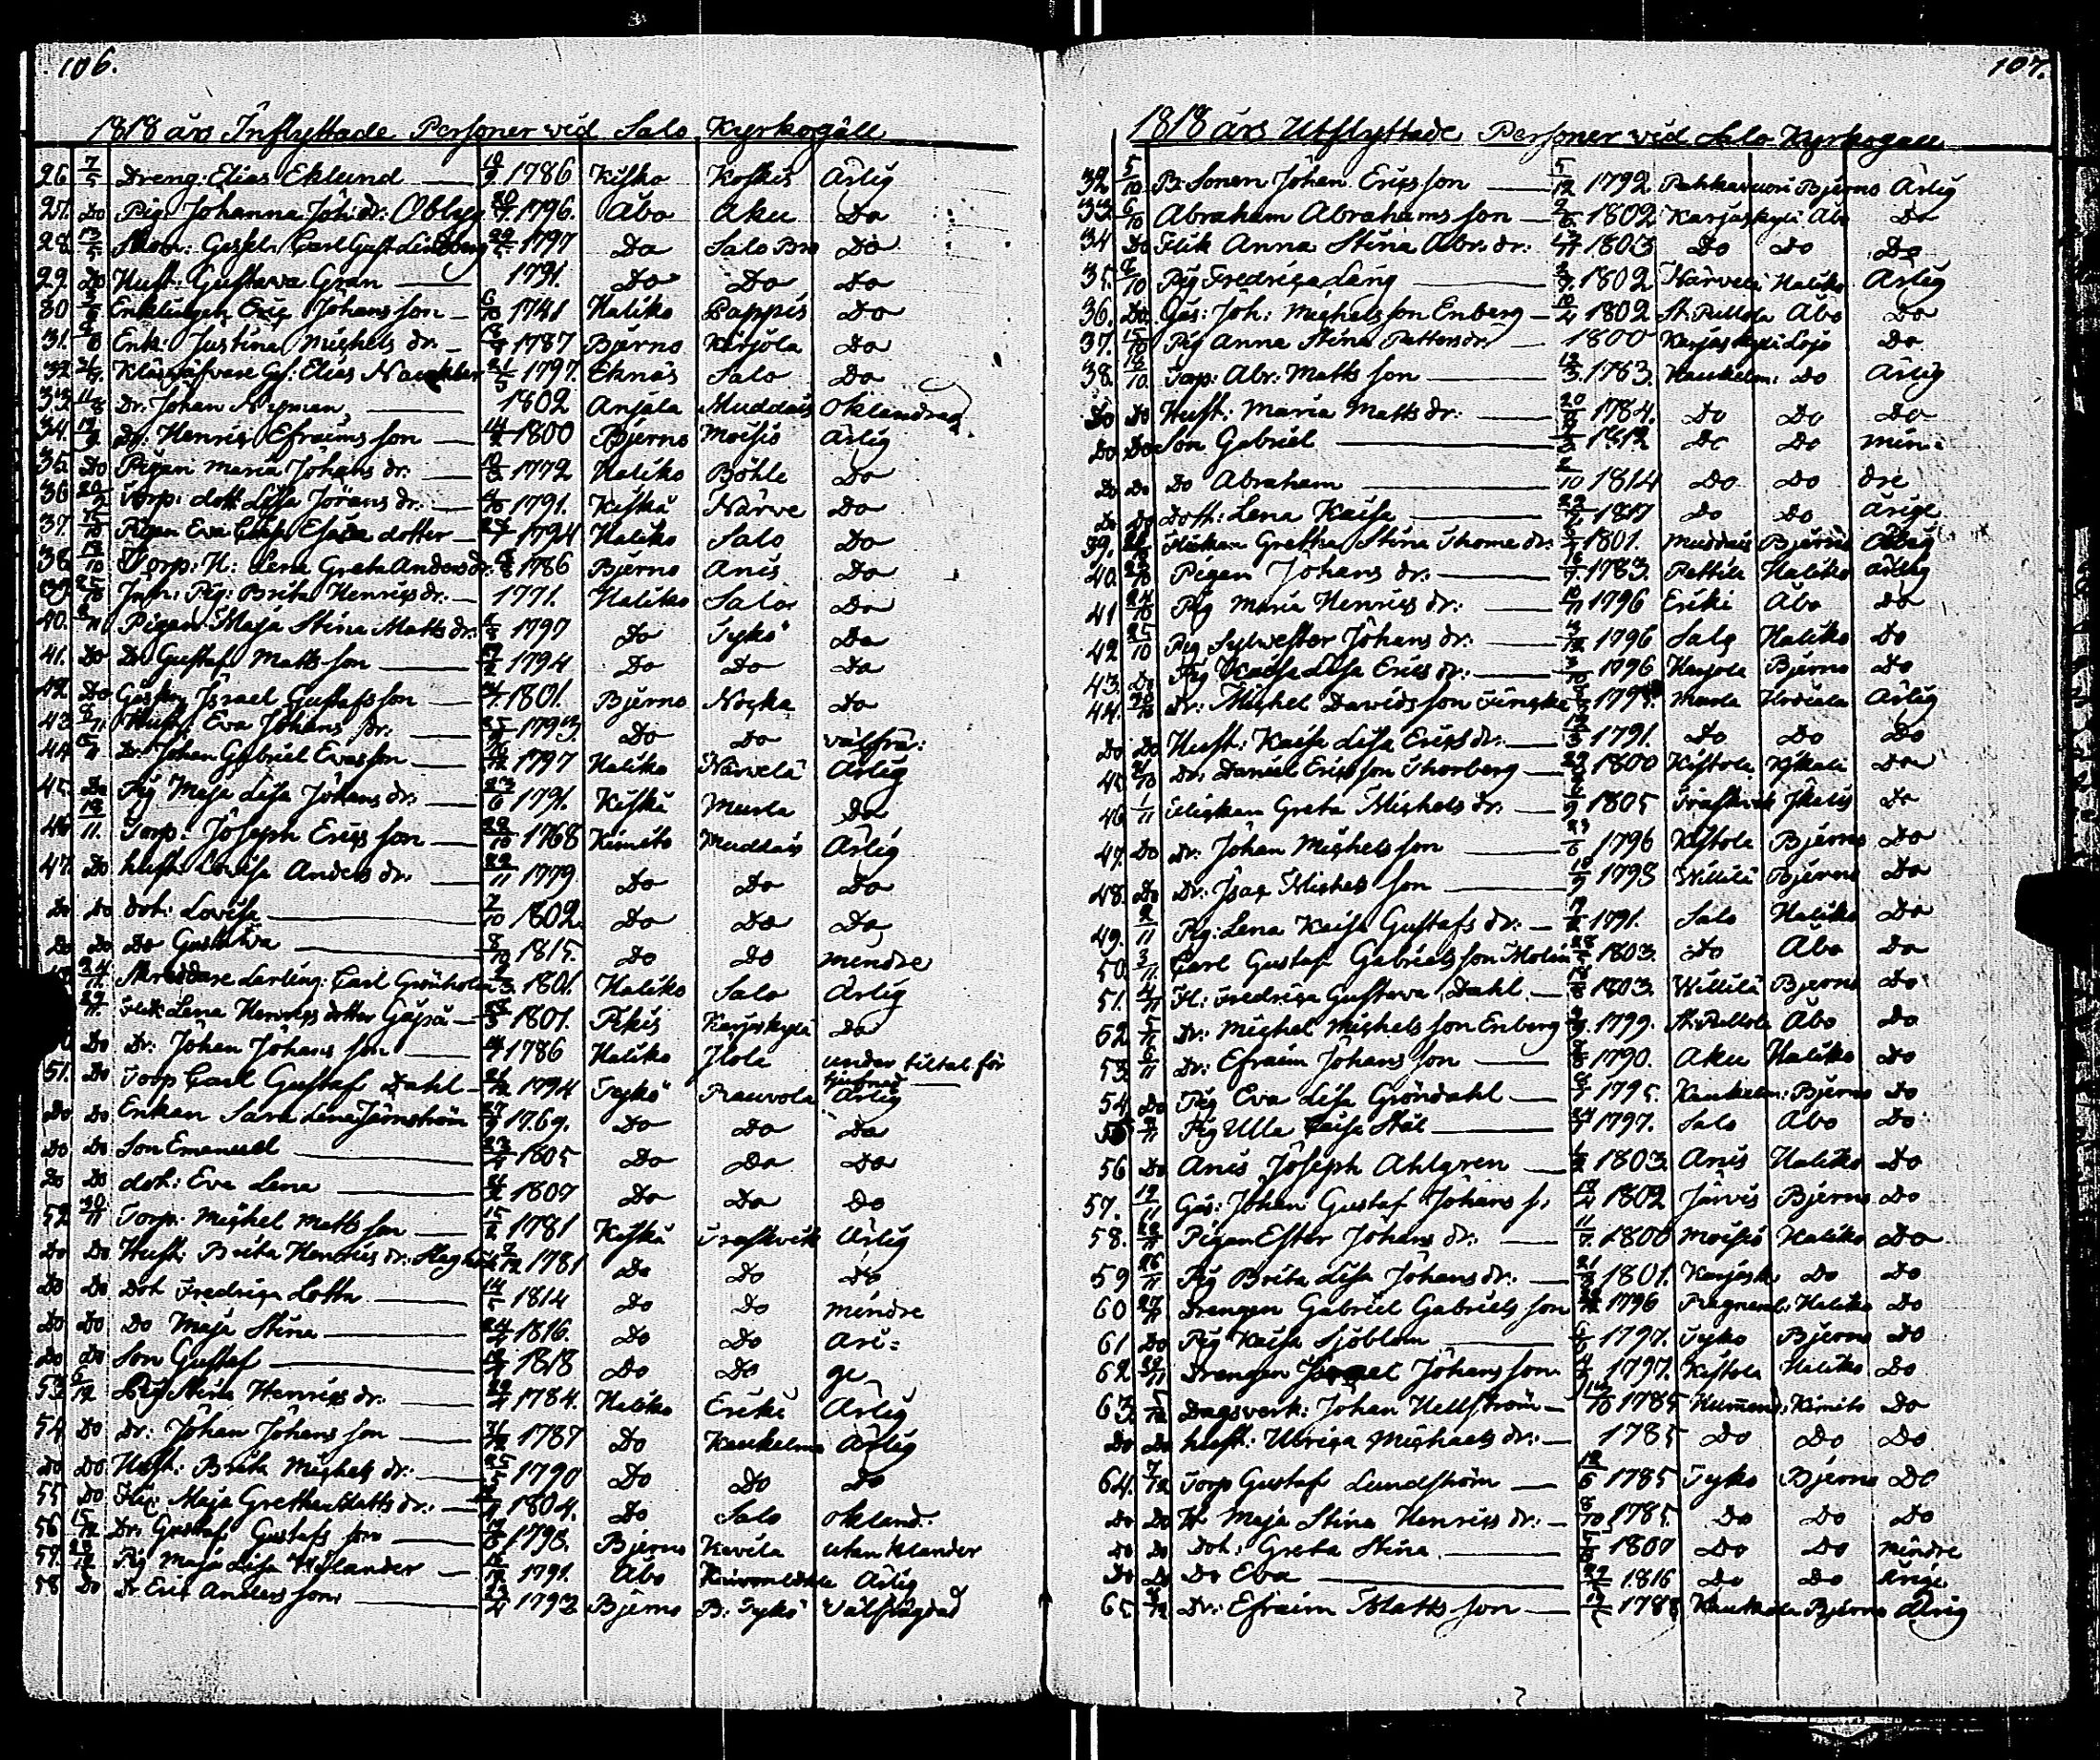 106.
1818 års Inflyttade Personer vid Salo Kyrkogäll
26 7/5 Dreng: Elias Eklund 1786 Kisko Koskis Ärlig
27. Do Pig: Johanna Joh: dr: 1796. Åbo Aku Do
28. 13/5 Skom: Gesseln Carl Gust Lindberg 1797 Do Salo Bro Do
29. Do Hust: Gustava Gran 1791. Do Do Do
30 Enklingen Eric Johansson 1741 Haliko Pappis Do
31. Enk: Justina Michels dr. 1787 Bjerno Kärjola Do
32. Elias 1797. Eknäs Salo Do
33. 11/8 Dr. Johan Nyman 1802 Anjala Muddais Oklandrad
34. Dr: Henric Efraimsson 1800 Bjerno Moisio Ärlig
35. Do Pigan Maria Johans dr. 1772 Haliko Böhle Do
36 Torp: dott Lisa Jörans dr. 1791. Kisko Närve Do
37. Pigan Eva dotter 1794 Haliko Salo Do
38. 12/10 Torp: H: Lena Greta Anders dr. 1786 Bjerno Anis Do
39. Inh: Pig: Brita Henrics dr. 1771. Haliko Salo Do
40. Pigan Maja Stina Matts dr. 1797 Do Tyko Do
41. Do Dr Gustaf Mattsson 1794 Do Do Do
42. Do Gåsk: Israel Gustafsson 1801. Bjerno Nocka Do
43. Hust: Eva Johans dr. 1793. Do Do välfrä:
44. Dr. Johan Gabriel Evasson 1797 Haliko Närvelä Ärlig
45. Do Pig Maja Lisa Johans dr. 1791. Kisko Murla Do
46 12/11. Torp: Joseph Ericsson 1768 Kimito Muddais Ärlig
47. Do Hust: Lovisa Anders dr. 22/11 1779 Do Do Do
Do Do dot: Lovisa 7/10 1802. Do Do Do
Do Do Do Gustava 8/10 1815. Do Do mindre
24/11. Skreddare Lerling: Carl Grönholm 1801. Haliko Salo Ärlig
29/11. Flik Lena Henrics dotter 1801. Pikis Karjaskylä Do
Do Dr: Johan Johansson 1786 Haliko Ilola under tiltal för tjufnad
51. Do Torp Carl Gustaf Dahl 1794 Tyko Rauvola Ärlig
Do Do Enkan Sara Lena Jernström 1769. Do Do Do
Do Do Son Emanuel 1805 Do Do Do
Do Do dot: Eva Lena 1807 Do Do Do
52. 30/11 Torp: Michel Mattsson 15/2 1781 Kisko Träskvik Ärlig
Do Do Hust: Brita Henrics dr. 1781 Do Do Do
Do Do Dot Fredrica Lotta 14/5 1814 Do Do mindre
Do Do Do Maja Stina 1816. Do Do åri:
Do Do Son Gustaf 1818 Do Do ge
53. Pig Stina Henrics dr. 1784. Haliko Ericki Ärlig
54. Do Dr: Johan Johansson 1787 Do Kaukelma Ärlig
Do Do Hust: Brita Michels dr. 25/5 1790 Do Do Do
55 Do Flic: Maja Gretha Matts dr. 1804. Do Salo okland.
56 15/12 Dr: Gustaf Gustafsson 1798. Bjerno Kavila utan klander
57. Pig Maja Lisa 1791. Åbo Ärlig
58 Do Dr Eric Andersson 1793 Bjerno B: Tyko Välfrägdad
107.
1818 års Utflyttade Personer vid Salo Kyrkogäll
32 5/10 B: Sonen Johan Ericsson 5/12 1792 Pahkavuori Bjerno Ärlig
33. 6/10 Abraham Abrahamsson 1802 Karjaskylä Åbo Do
34 Do Flik Anna Stina Abr: dr: 1803 Do Do Do
35. Pig Fredrica Lång 1802 Närvelä Haliko Ärlig
36. Do Gås: Joh: Michelsson Enberg 1802 Åbo Do
37. Pig Anna Stina Petters dr. 1800 Karjaskylä Lojo Do
38. Torp: Abr: Mattsson 1763. Kaukelm: Do Ärlig
Do Do Hust: Maria Matts dr. 1784. Do Do Do
Do Do Son Gabriel 1812 Do Do min:
Do Do Do Abraham 1814 Do Do dre
Do Do Dott: Lena Kaisa 1817 Do Do Årige
39. Flickan Gretha Stina Thome dr. 1801. Muddais Bjerno Ärlig
40. Pigan Johans dr. 1783. Pettila Haliko Ärlig
41 24/10 Pig Maria Henrics dr. 1796 Ericki Åbo Do
42 25/10 Pig Sylvester Johans dr. 1796 Salo Haliko Do
43. Do Pig Kaisa Lisa Erics dr. 1796 Karjola Bjerno Do
44. Dr: Michel Davidsson Murla Ärlig
Do Do Hust: Kaisa Lisa Erics dr. 1791. Do Do Do
45. Dr: Daniel Ericsson Thorberg 1800 Kistola Do
46. 1/11 Flickan Greta Michels dr. 1805 Träskvik Do
47. Do Dr. Johan Michelsson 1796 Kistola Bjerno Do
48. Do Dr. Isac Michelsson 1798 Willilä Bjerno Do
49. 2/11 Pig: Lena Kaisa Gustafs dr. 1791. Salo Haliko Do
50. 3/11. Carl Gustaf Gabrielsson Molin 1803. Do Åbo Do
51. 4/11 Fl: Fredrica Gustava Dahl 1803. Willilä Bjerno Do
52 Dr: Michel Michelsson Enberg 1799. Åbo Do
53. Dr: Efraim Johansson 1790. Aku Haliko Do
54 Do Pig Eva Lisa Gröndahl 1795. Kaukelm: Bjerno Do
55 Pig Ulla Caisa Stål 1797. Salo Åbo Do
56 Do Anis Joseph Ahlgren 1803. Anis Haliko Do
57. Gås: Johan Gustaf Johans s. 1802 Järvis Bjerno Do
58. Pigan Ester Johans dr. 1800 Moisio Haliko Do
59 26/11 Pig Brita Lisa Johans dr. 1801. Karjask. Do Do
60 27/11 Drengen Gabriel Gabrielsson 1796 Haliko Do
61 Do Pig Kaisa Sjöblom 1797. Tyko Bjerno Do
62 29/11 Drengen Israel Johansson 1797. Kistola Haliko Do
63. 5/12 Dagsverk: Johan Hellström 1785 Kimito Do
Do Do Hust: Ulrica Michaels dr: 1785 Do Do Do
64. 7/12 Torp Gustaf Lundström 1785 Tyko Bjerno Do
Do Do H Maja Stina Henrics dr: 8/10 1785. Do Do Do
Do Do Dot: Greta Stina 1807 Do Do mindre
Do Do Do Eva 1816 Do Do årige
65 Dr: Efraim Mattsson 1788 Bjerno Ärlig